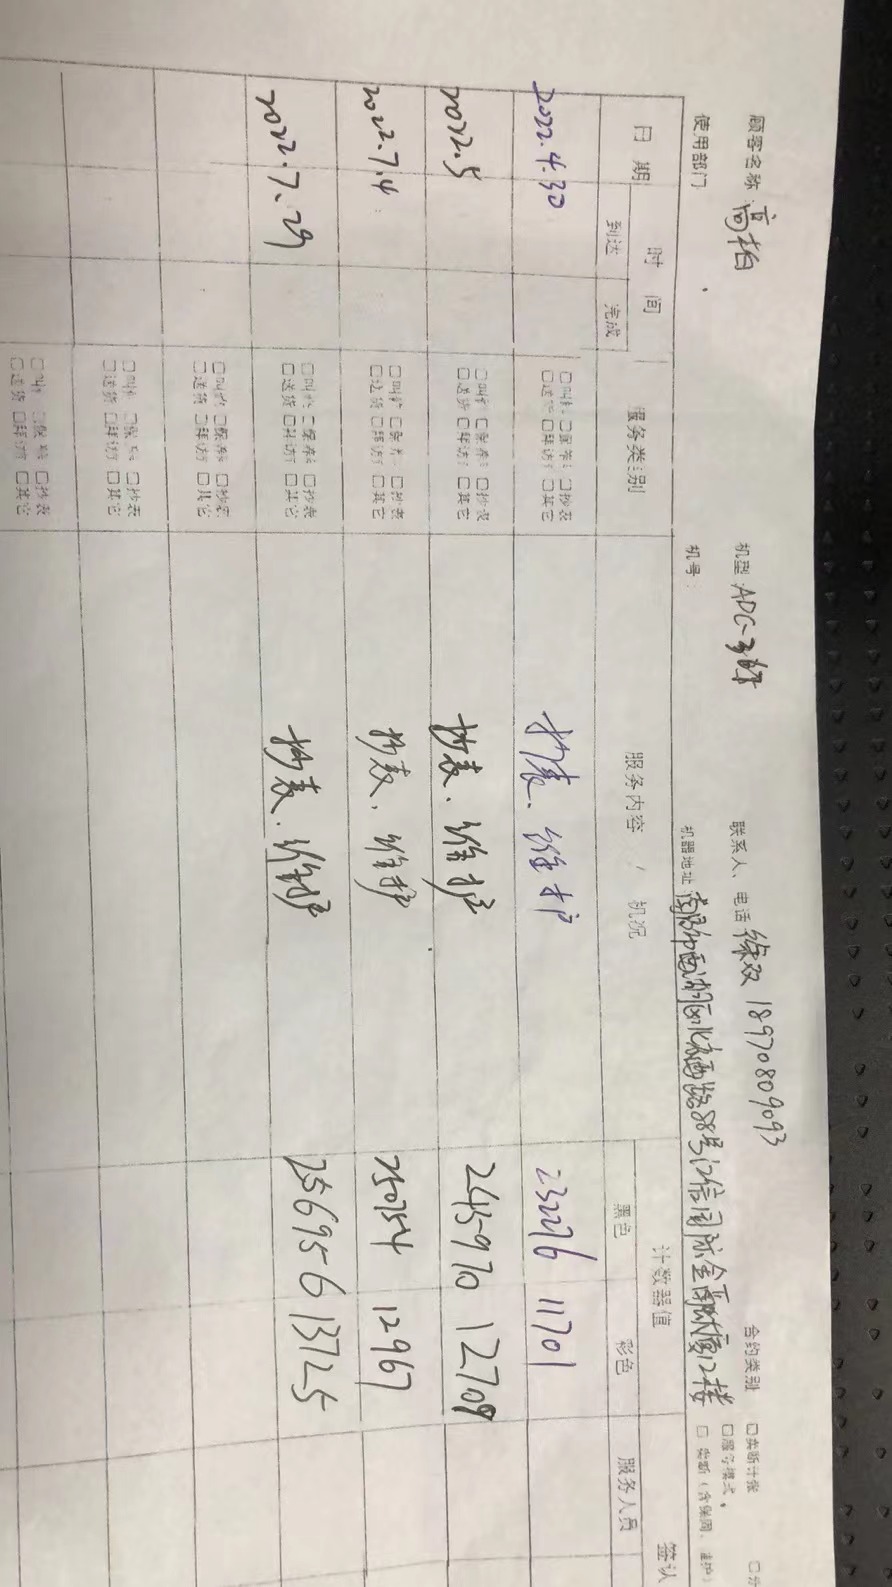 顾客名称：高柏 机型：APC- 联系人、电话 徐双 18970809093 合约类别 □卖断计张
使用部门 机号： 机器地址 88号 国际金 大厦12楼 □服务模式
□卖断（含保固、维护）
日期 时间 服务类别 服务内容 / 机况 计数器值 签认
到达 完成 黑色 彩色 服务人员
2022.4.30 □叫修 □保养 □抄表 抄表、维护 232276 11701
□送货 □拜访 □其它
2022.5 □叫修 □保养 □抄表 抄表、维护 245970 12709
□送货 □拜访 □其它
2022.7.4 □叫修 □保养 □抄表 抄表、维护 250754 12967
□送货 □拜访 □其它
2022.7.29 □叫修 □保养 □抄表 抄表、维护 256956 13725
□送货 □拜访 □其它
□叫修 □保养 □抄表
□送货 □拜访 □其它
□叫修 □保养 □抄表
□送货 □拜访 □其它
□叫修 □保养 □抄表
□送货 □拜访 □其它